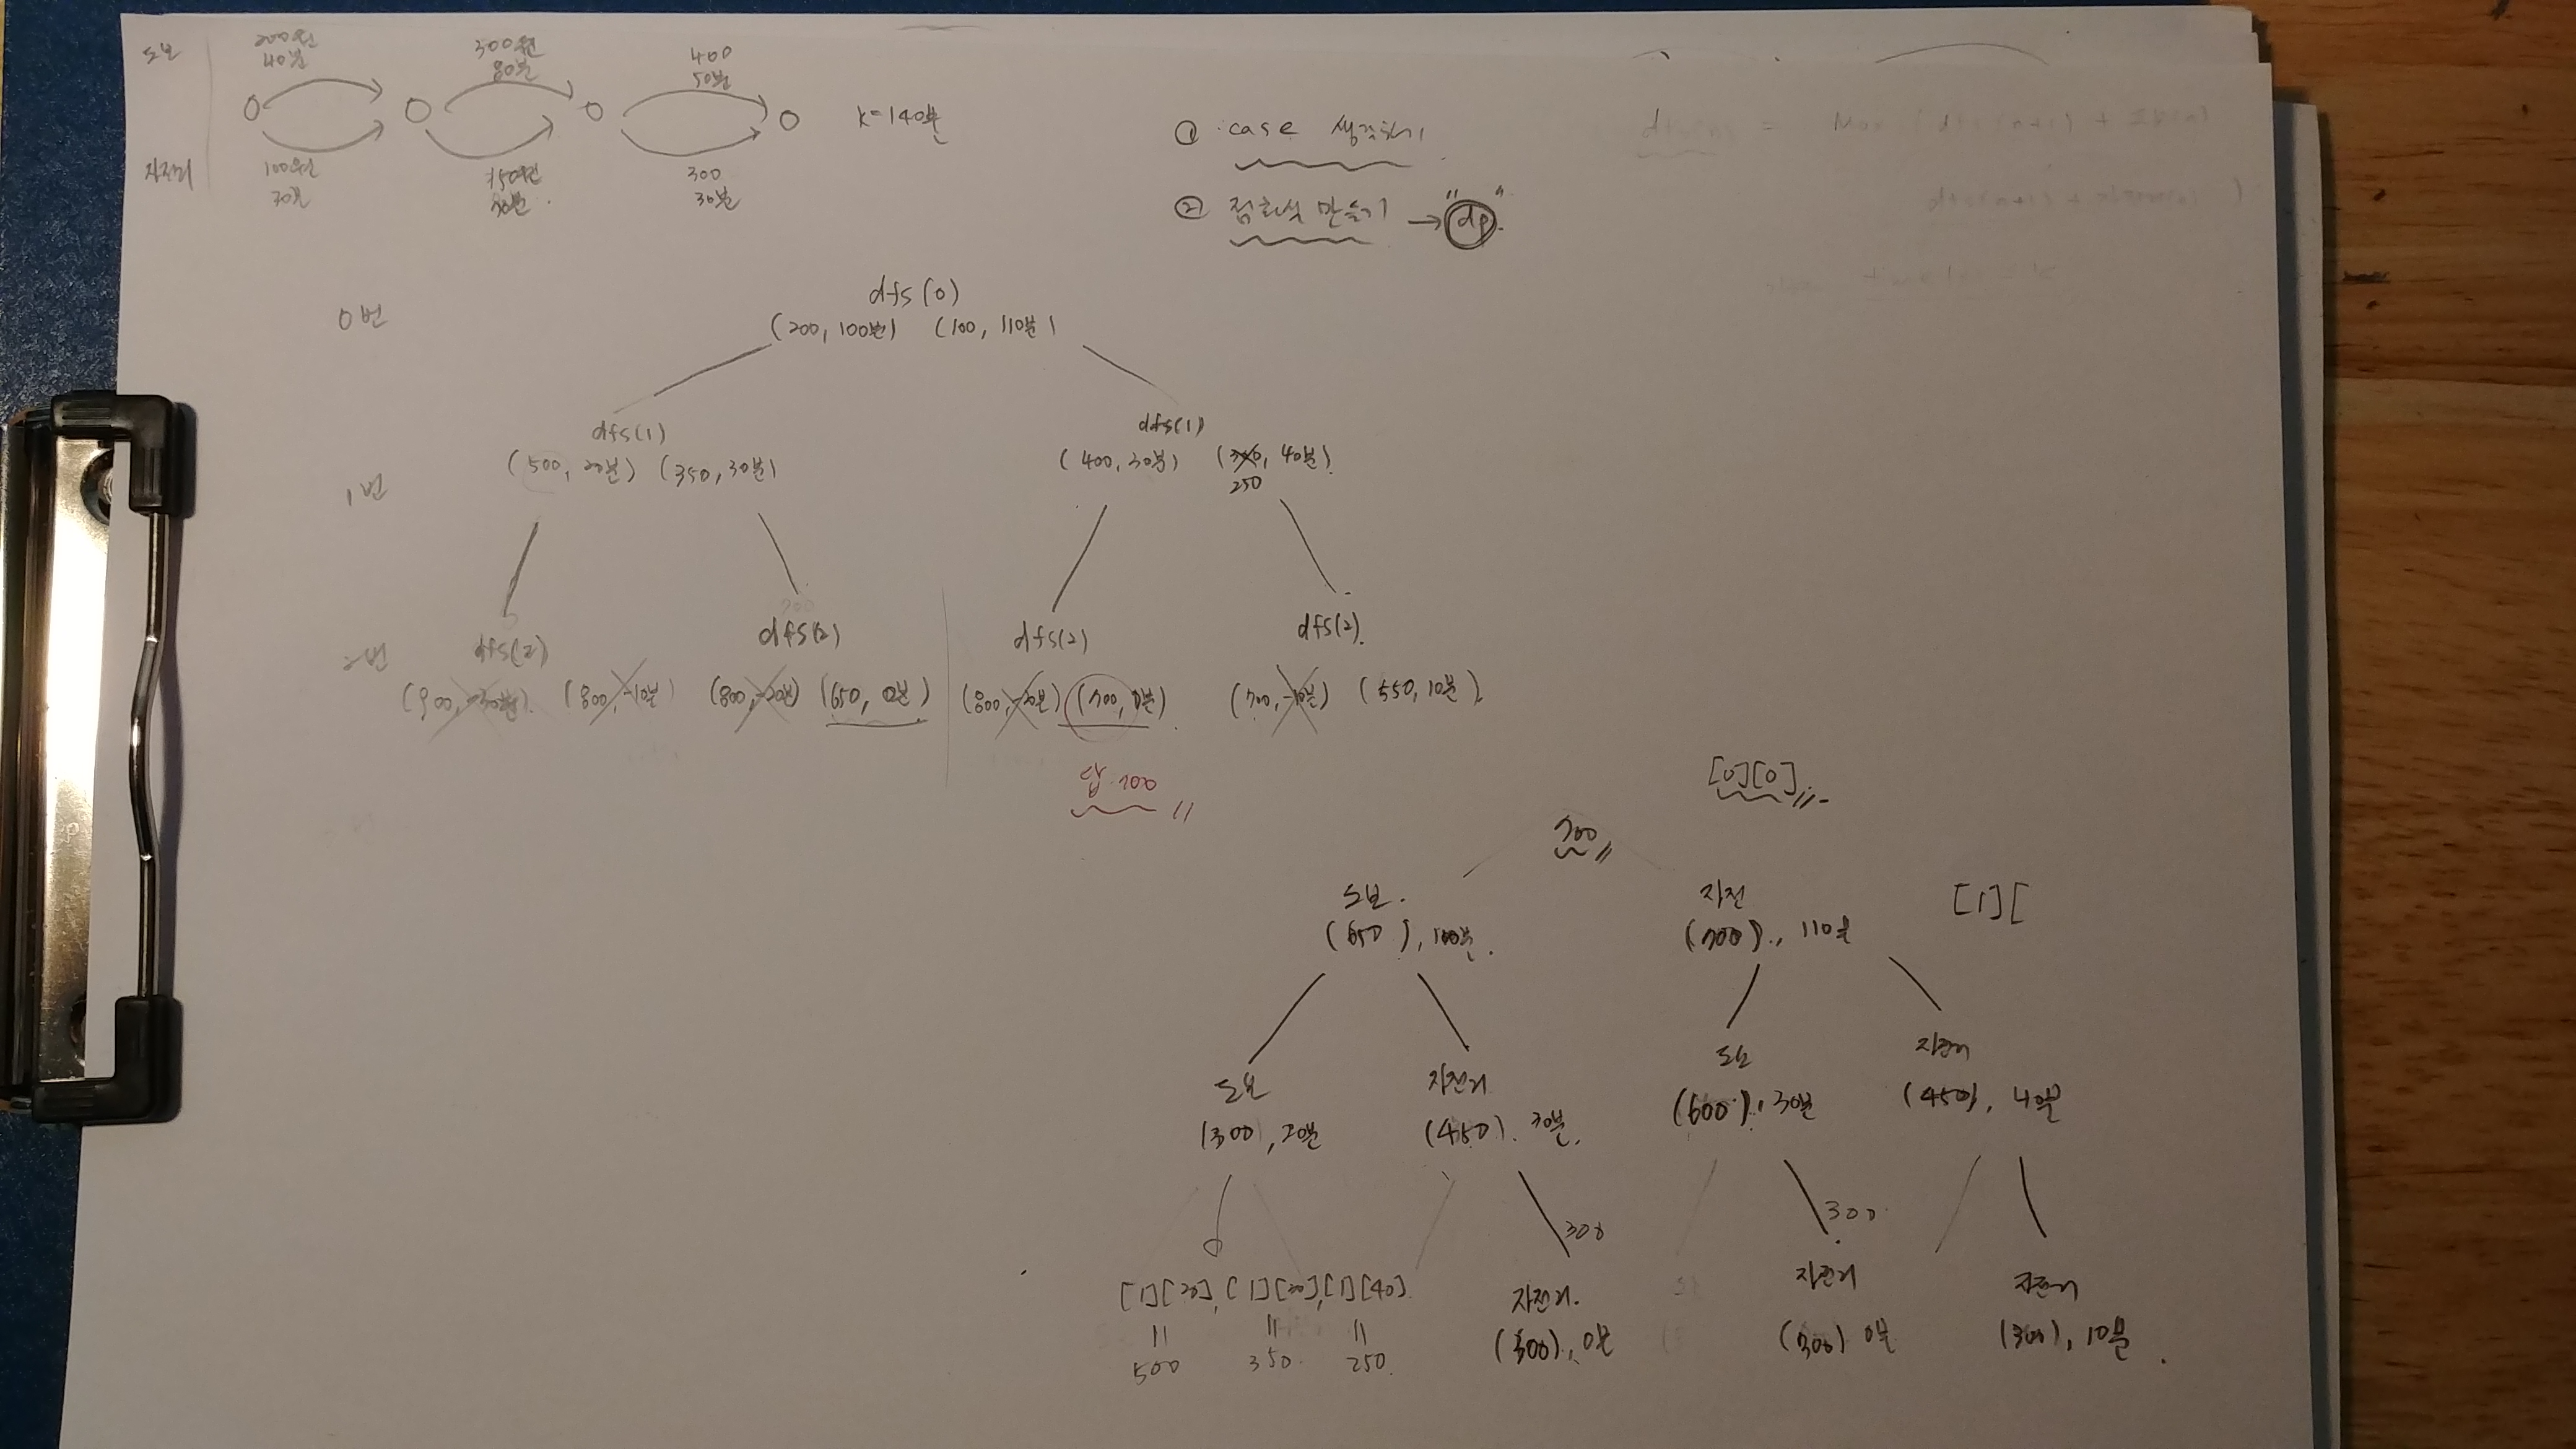 도보
200원
40분
300원
80분
400
50분
k=140분
자전거
100원
30분
150원
70분
300
30분
① case 생각하기
② 점화식 만들기 → "dp"
0번
dfs(0)
(200, 100분) (100, 110분)
1번
dfs(1)
(500, 20분) (350, 30분)
dfs(1)
(400, 30분) (350, 40분)
250
2번
dfs(2)
(900, -30분) (800, -10분)
dfs(2)
(800, -20분) (650, 0분)
dfs(2)
(800, -20분) (700, 0분)
dfs(2)
(700, -10분) (550, 10분)
답 700
[0][0]
700
도보
(650), 100분
자전
(700), 110분
[1][
도보
(300), 20분
자전거
(450), 30분
도보
(600), 30분
자전거
(450), 40분
300
300
[1][20], [1][30], [1][40]
500 350 250
자전거
(300), 0분
자전거
(300) 0분
자전거
(300), 10분